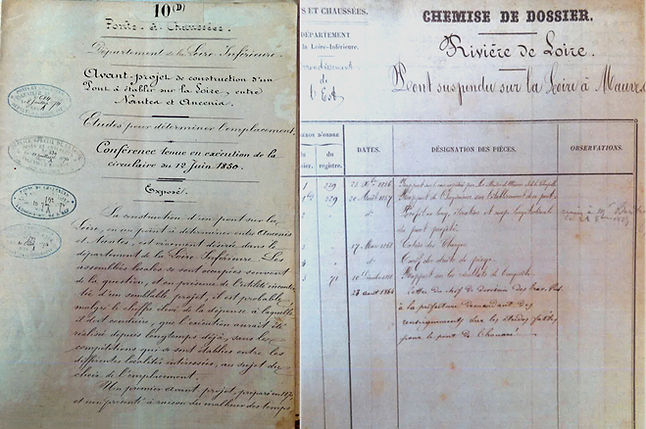 10 (D)
Ponts & Chaussées.
Département de la Loire Inférieure.
Avant-projet de construction d'un
Pont à établir sur la Loire, entre
Nantes et Ancenis.
Etudes pour déterminer l'emplacement
Conférence tenue en exécution de la
circulaire du 12 Juin 1850.
Exposé.
La construction d'un pont sur la
Loire, en un point à déterminer entre Ancenis
et Nantes, est vivement désirée dans le
département de la Loire Inférieure. Les
assemblées locales se sont occupées souvent
de la question, et en présence de l'utilité incontes
tée d'un semblable projet, il est probable,
malgré le chiffre élevé de la dépense à laquelle
il doit conduire, que l'exécution aurait été
réalisée depuis longtemps déjà, sans les
compétitions qui se sont établies entre les
différentes localités intéressées, au sujet du
choix de l'emplacement.
Un premier avant projet, préparé en
et non présenté à raison du malheur des temps,
S ET CHAUSSÉES.
DÉPARTEMENT
la Loire-Inférieure.
rrondissement
de
l'Est
CHEMISE DE DOSSIER.
Rivière de Loire.
Pont suspendu sur la Loire à Mauves
MÉROS D'ORDRE
du registre.
DATES.
DÉSIGNATION DES PIÈCES.
OBSERVATIONS.
1 329
329 20 Août 1857 Rapport sur l'établissement d'un pont
2 d° Profil en long, élévation et coupe longitudinale
du pont projeté
17 Mars 1858 Cahier des Charges
d° Tarif des droits de péage
3 71 Rapport sur les résultats de l'enquête
23 août 1864 Lettre du chef de division des
à la préfecture demandant des
renseignements sur les études faites
pour le pont de Thouaré